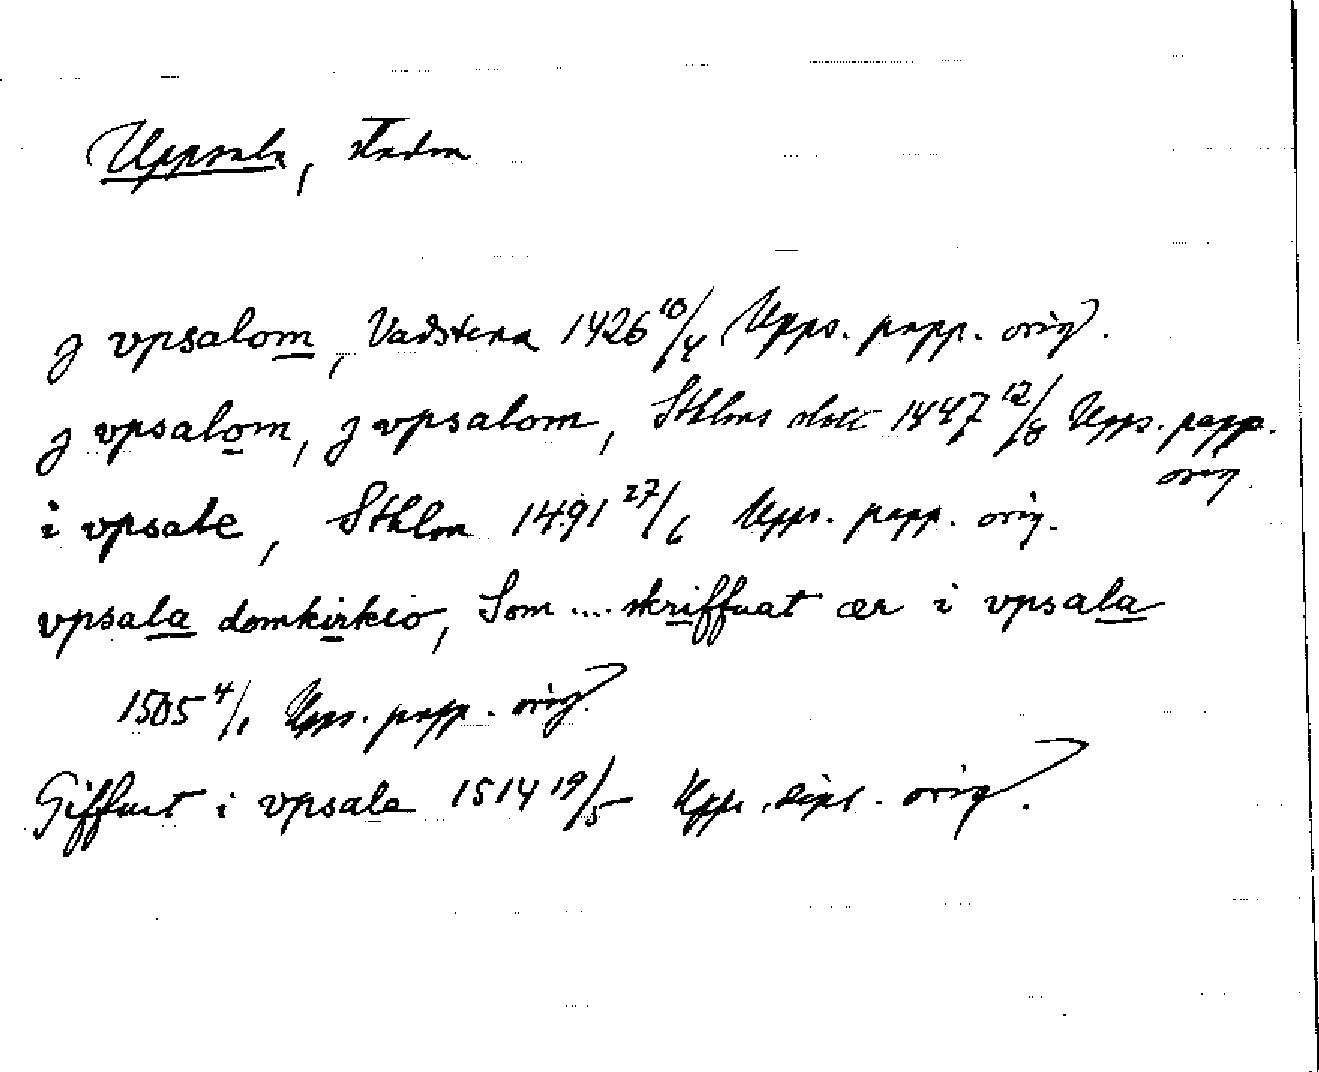 Uppsala, staden
j vpsalom, Vadstena 1426 10/4 Upps. papp. orig.
j vpsalom, j vpsalom, Sthlms slott 1447 12/8 Upps. papp.
orig.
i vpsale, Sthlm 1491 27/6 Upps. papp. orig.
vpsala domkirkio, Som .... skriffuat ær i vpsala
1505 4/1 Upps. papp. orig.
Giffuit i vpsale 1514 19/5 Upps. dipl. orig.